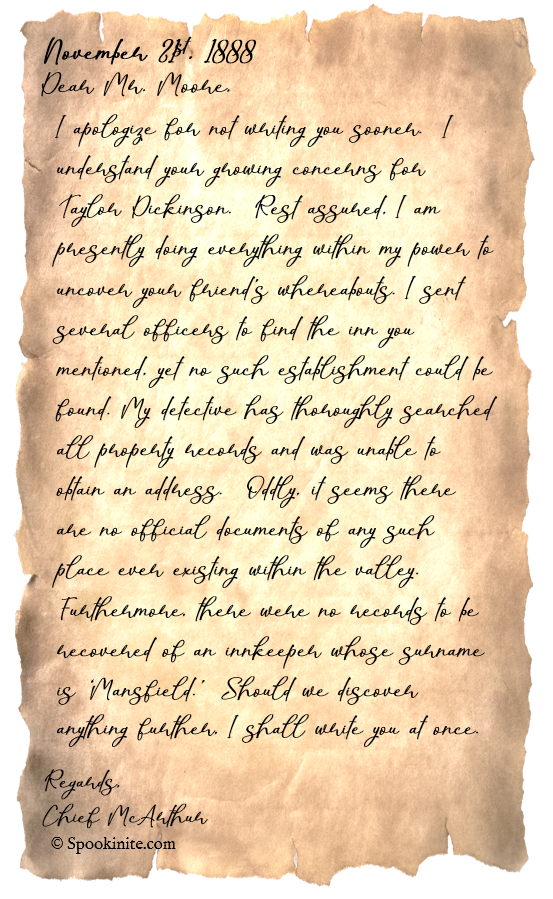 November 21st, 1888
Dear Mr. Moore,
I apologize for not writing you sooner. I
understand your growing concerns for
Taylor Dickinson. Rest assured, I am
presently doing everything within my power to
uncover your friend's whereabouts. I sent
several officers to find the inn you
mentioned, yet no such establishment could be
found. My detective has thoroughly searched
all property records and was unable to
obtain an address. Oddly, it seems there
are no official documents of any such
place ever existing within the valley.
Furthermore, there were no records to be
recovered of an innkeeper whose surname
is 'Mansfield.' Should we discover
anything further, I shall write you at once.
Regards,
Chief McArthur
© Spookinite.com